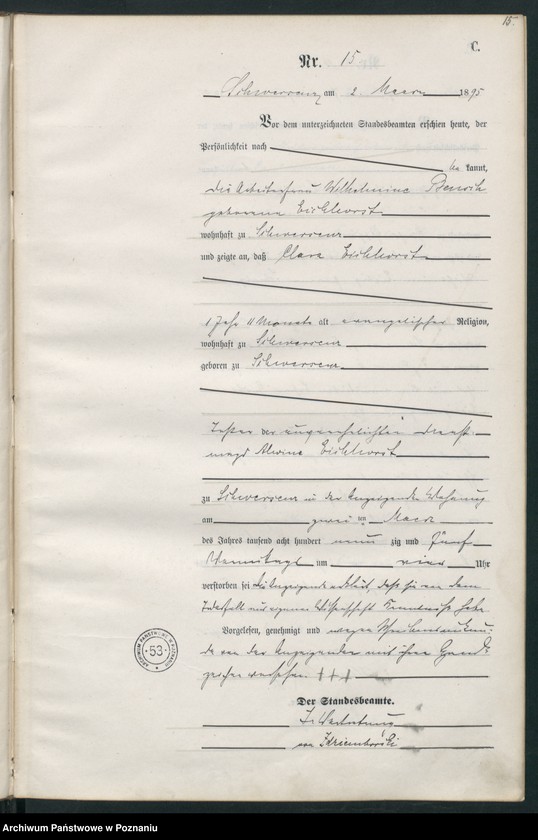 15.
C.
Nr. 15
Schwersenz am 2. Maerz 1895
Vor dem unterzeichneten Standesbeamten erschien heute, der
Persönlichkeit nach
be kannt,
die Arbeiterfrau Wilhelmine
geborene Eichhorst
wohnhaft zu Schwersenz
und zeigte an, daß Clara Eichhorst
1 Jahr 11 Monate alt evangelischer Religion,
wohnhaft zu Schwersenz
geboren zu Schwersenz
Tochter der unverehelichten Dienst
magd Alwine Eichhorst
zu Schwersenz in der Anzeigende Wohnung
am zwei ten Maerz
des Jahres tausend acht hundert neun zig und fünf
Vormittags um vier Uhr
verstorben sei die Anzeigende erklärt, daß sie von dem
Todesfall aus eigener Wissenschaft Kenntniß habe.
Vorgelesen, genehmigt und wegen Schreibensunkun
de von der Anzeigenden mit ihrem Hand
zeichen versehen. +++
Der Standesbeamte.
In Vertretung
von
ARCHIWUM PAŃSTWOWE W POZNANIU
53
Archiwum Państwowe w Poznaniu